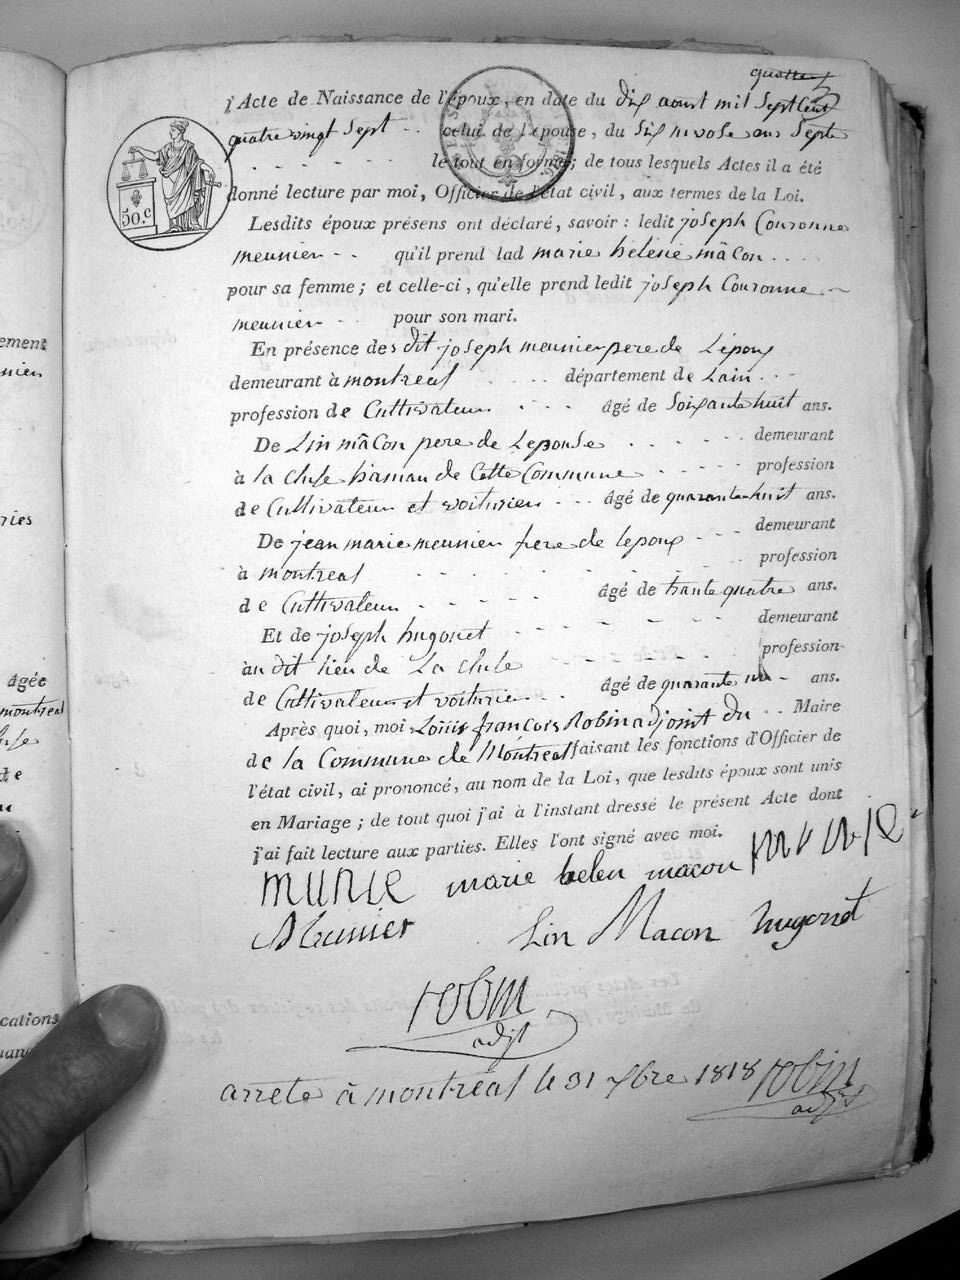 quatre
l'Acte de Naissance de l'époux, en date du dix aoust mil sept cent
quatre vingt sept celui de l'épouse, du six nivose an Sept
le tout en forme; de tous lesquels Actes il a été
donné lecture par moi, Officier de l'état civil, aux termes de la Loi.
50.c
Lesdits époux présens ont déclaré, savoir: ledit joseph Couronne
meunier qu'il prend lad marie hélène mâcon
pour sa femme; et celle-ci, qu'elle prend ledit joseph Couronne
meunier pour son mari.
En présence des dit joseph meunier pere de Lepoux
demeurant à montreal département de Lain
profession de Cultivateur âgé de Soixante huit ans.
De Lin mâcon pere de Lepouse demeurant
à la cluse hamau de Cette Commune profession
de Cultivateur et voiturier âgé de quarante huit ans.
De jean marie meunier frere de lepoux demeurant
à montreal profession
de Cultivateur âgé de trante quatre ans.
Et de joseph hugonet demeurant
au dit lieu de La cluse profession
de Cultivateur et voiturier âgé de quarante ans.
Après quoi, moi Louis françois Robin adjoint du Maire
de la Commune de Montreal faisant les fonctions d'Officier de
l'état civil, ai prononcé, au nom de la Loi, que lesdits époux sont unis
en Mariage; de tout quoi j'ai à l'instant dressé le présent Acte dont
j'ai fait lecture aux parties. Elles l'ont signé avec moi.
MUNIE marie helen macon
Meunier Lin Macon hugonet
robin
adjt
arrete à montreal le 31 xbre 1818 robin
adjt
ement
nier
ries
agée
montreal
cations